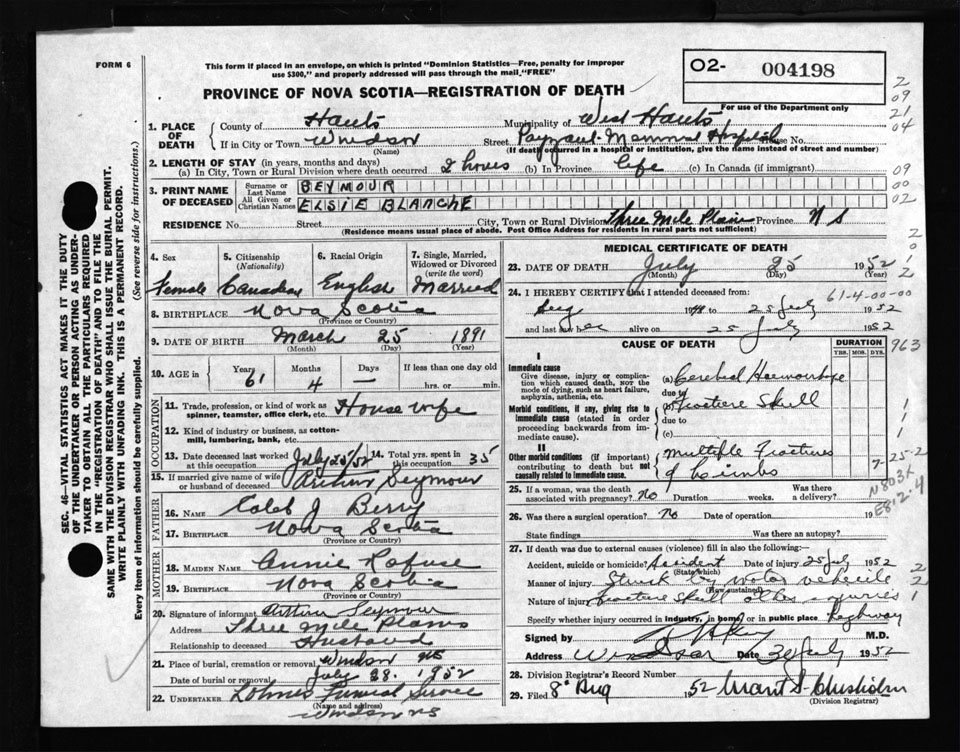 FORM 6
This form if placed in an envelope, on which is printed "Dominion Statistics—Free, penalty for improper
use $300," and properly addressed will pass through the mail "FREE"
O2- 004198
For use of the Department only
PROVINCE OF NOVA SCOTIA—REGISTRATION OF DEATH
2
09
21
04
09
00
02
2
0
1
2
SEC. 46—VITAL STATISTICS ACT MAKES IT THE DUTY
OF THE UNDERTAKER OR PERSON ACTING AS UNDER-
TAKER TO OBTAIN ALL THE PARTICULARS REQUIRED
IN THE "REGISTRATION OF DEATH" AND TO FILE THE
SAME WITH THE DIVISION REGISTRAR WHO SHALL ISSUE THE BURIAL PERMIT.
WRITE PLAINLY WITH UNFADING INK. THIS IS A PERMANENT RECORD.
Every item of information should be carefully supplied. (See reverse side for instructions.)
1. PLACE OF DEATH
County of Hants Municipality of West Hants
If in City or Town Windsor Street Payzant Memorial Hospital House No.
(Name) (If death occurred in a hospital or institution, give the name instead of street and number)
2. LENGTH OF STAY (in years, months and days)
(a) In City, Town or Rural Division where death occurred 2 hours (b) In Province life (c) In Canada (if immigrant)
3. PRINT NAME OF DECEASED
Surname or Last Name BEYMOUR
All Given or Christian Names ELSIE BLANCHE
RESIDENCE No. Street City, Town or Rural Division Three Mile Plains Province N S
(Residence means usual place of abode. Post Office Address for residents in rural parts not sufficient)
4. Sex 5. Citizenship (Nationality) 6. Racial Origin 7. Single, Married, Widowed or Divorced (write the word)
Female Canadian English Married
8. BIRTHPLACE Nova Scotia
(Province or Country)
9. DATE OF BIRTH March 25 1891
(Month) (Day) (Year)
10. AGE in Years Months Days If less than one day
61 4 — hrs. or min.
OCCUPATION
11. Trade, profession, or kind of work as spinner, teamster, office clerk, etc. House wife
12. Kind of industry or business, as cotton-mill, lumbering, bank, etc.
13. Date deceased last worked at this occupation July 25/52 14. Total yrs. spent in this occupation 35
15. If married give name of wife or husband of deceased Arthur Seymour
FATHER
16. NAME Caleb J Berry
17. BIRTHPLACE Nova Scotia
(Province or Country)
MOTHER
18. MAIDEN NAME Annie Rafuse
19. BIRTHPLACE Nova Scotia
(Province or Country)
20. Signature of informant Arthur Seymour
Address Three Mile Plains
Relationship to deceased Husband
21. Place of burial, cremation or removal Windsor NS
Date of burial or removal July 28. 1952
22. UNDERTAKER Lohnes Funeral Service
(Name and address)
Windsor NS
MEDICAL CERTIFICATE OF DEATH
23. DATE OF DEATH July 25 1952
(Month) (Day) (Year)
24. I HEREBY CERTIFY that I attended deceased from: 61-4-00-00
to 25 July 1952
and last saw her alive on 25 July 1952
CAUSE OF DEATH DURATION 963
YRS. MOS. DYS.
I
Immediate cause
Give disease, injury or complication which caused death, NOT the mode of dying, such as heart failure, asphyxia, asthenia, etc.
(a) Cerebral Haemorrhage
due to
Morbid conditions, if any, giving rise to immediate cause (stated in order proceeding backwards from immediate cause).
(b) Fracture Skull 1
due to
(c) 1
II
Other morbid conditions (if important) contributing to death but not causally related to immediate cause.
Multiple Fractures
of Limbs
7-25-2
N803X
E812.4
25. If a woman, was the death associated with pregnancy? No Duration weeks. Was there a delivery?
26. Was there a surgical operation? No Date of operation 19
State findings Was there an autopsy?
27. If death was due to external causes (violence) fill in also the following:—
Accident, suicide or homicide? Accident Date of injury 25 July 1952
(State which)
Manner of injury Struck by motor vehicle
(How sustained)
Nature of injury Fracture skull other injuries
2
2
1
Specify whether injury occurred in industry, in home, or in public place highway
Signed by M.D.
Address Windsor Date 30 July 1952
28. Division Registrar's Record Number
29. Filed 8 Aug 1952 Grant S. Chisholm
(Division Registrar)